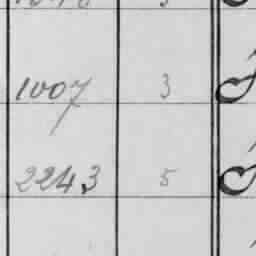 1007 3
2243 5